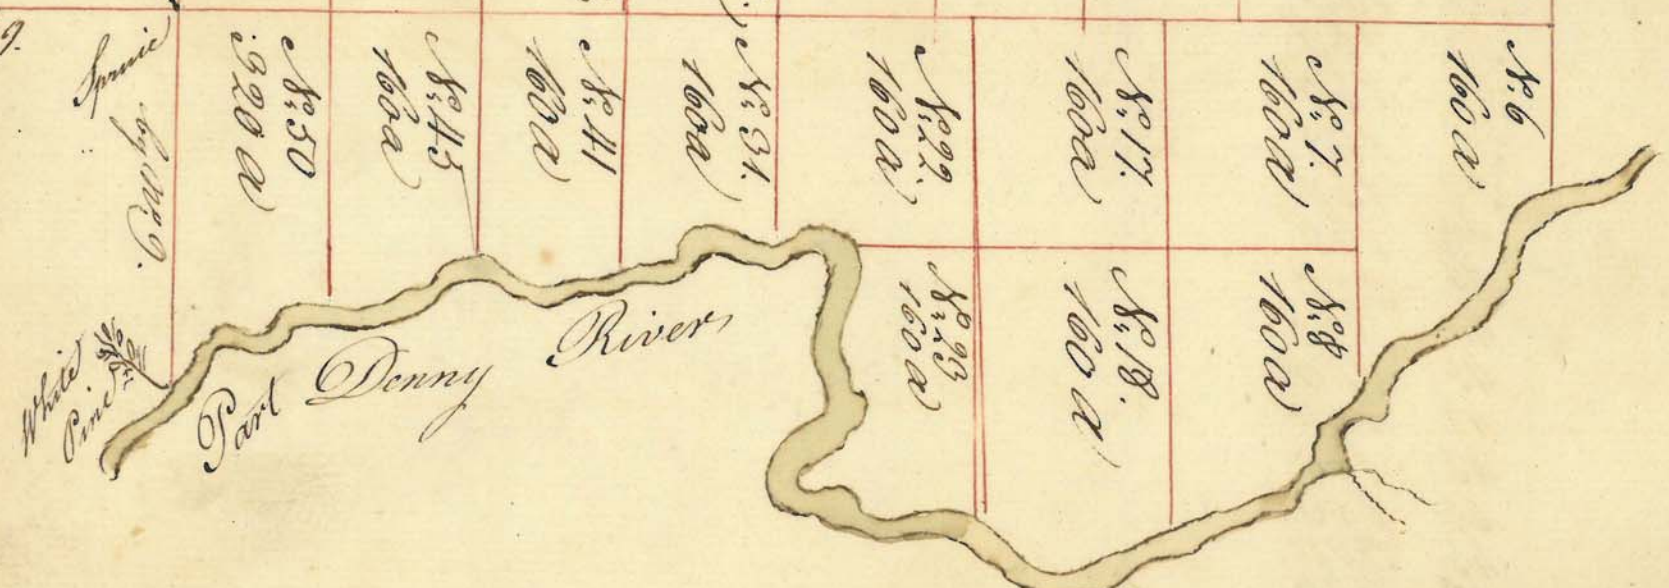 Spruce
by Mr. G.
No. 50
320 a
No. 45
160 a
No. 41
160 a
No. 31.
160 a
No. 22.
160 a
No. 17.
160 a
No. 7.
160 a
No. 6
160 a
No. 23
160 a
No. 18.
160 a
No. 8
160 a
White
Pine
Part Denny River